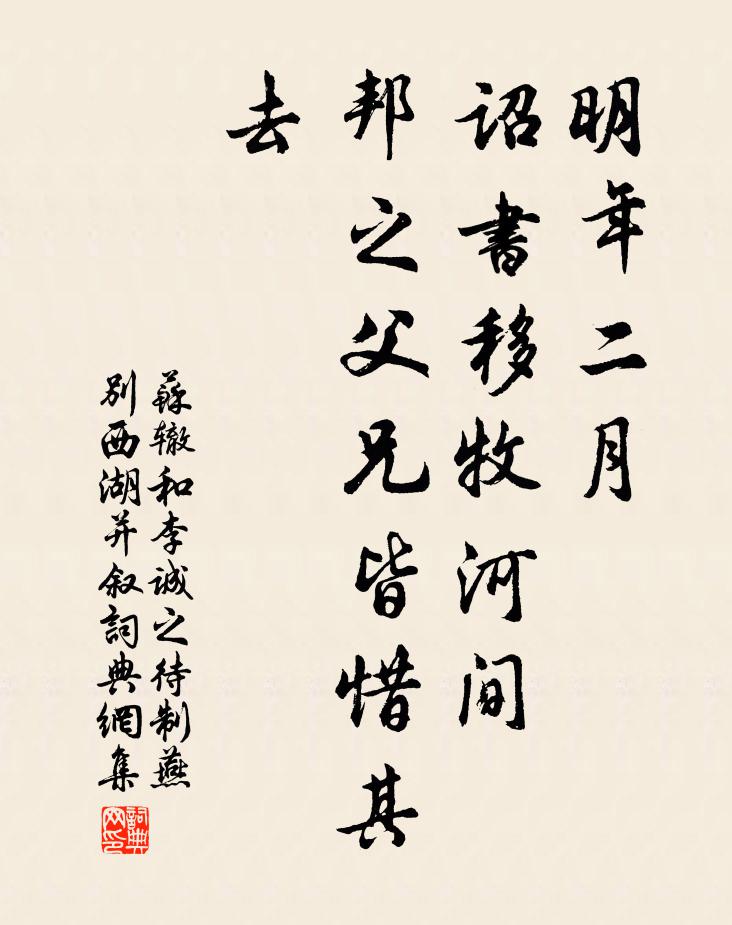 明年二月
詔書移牧河间
邦之父兄皆惜其
去
蘇辙和李诚之待制燕
别西湖并叙詞典網集
詞典
网印